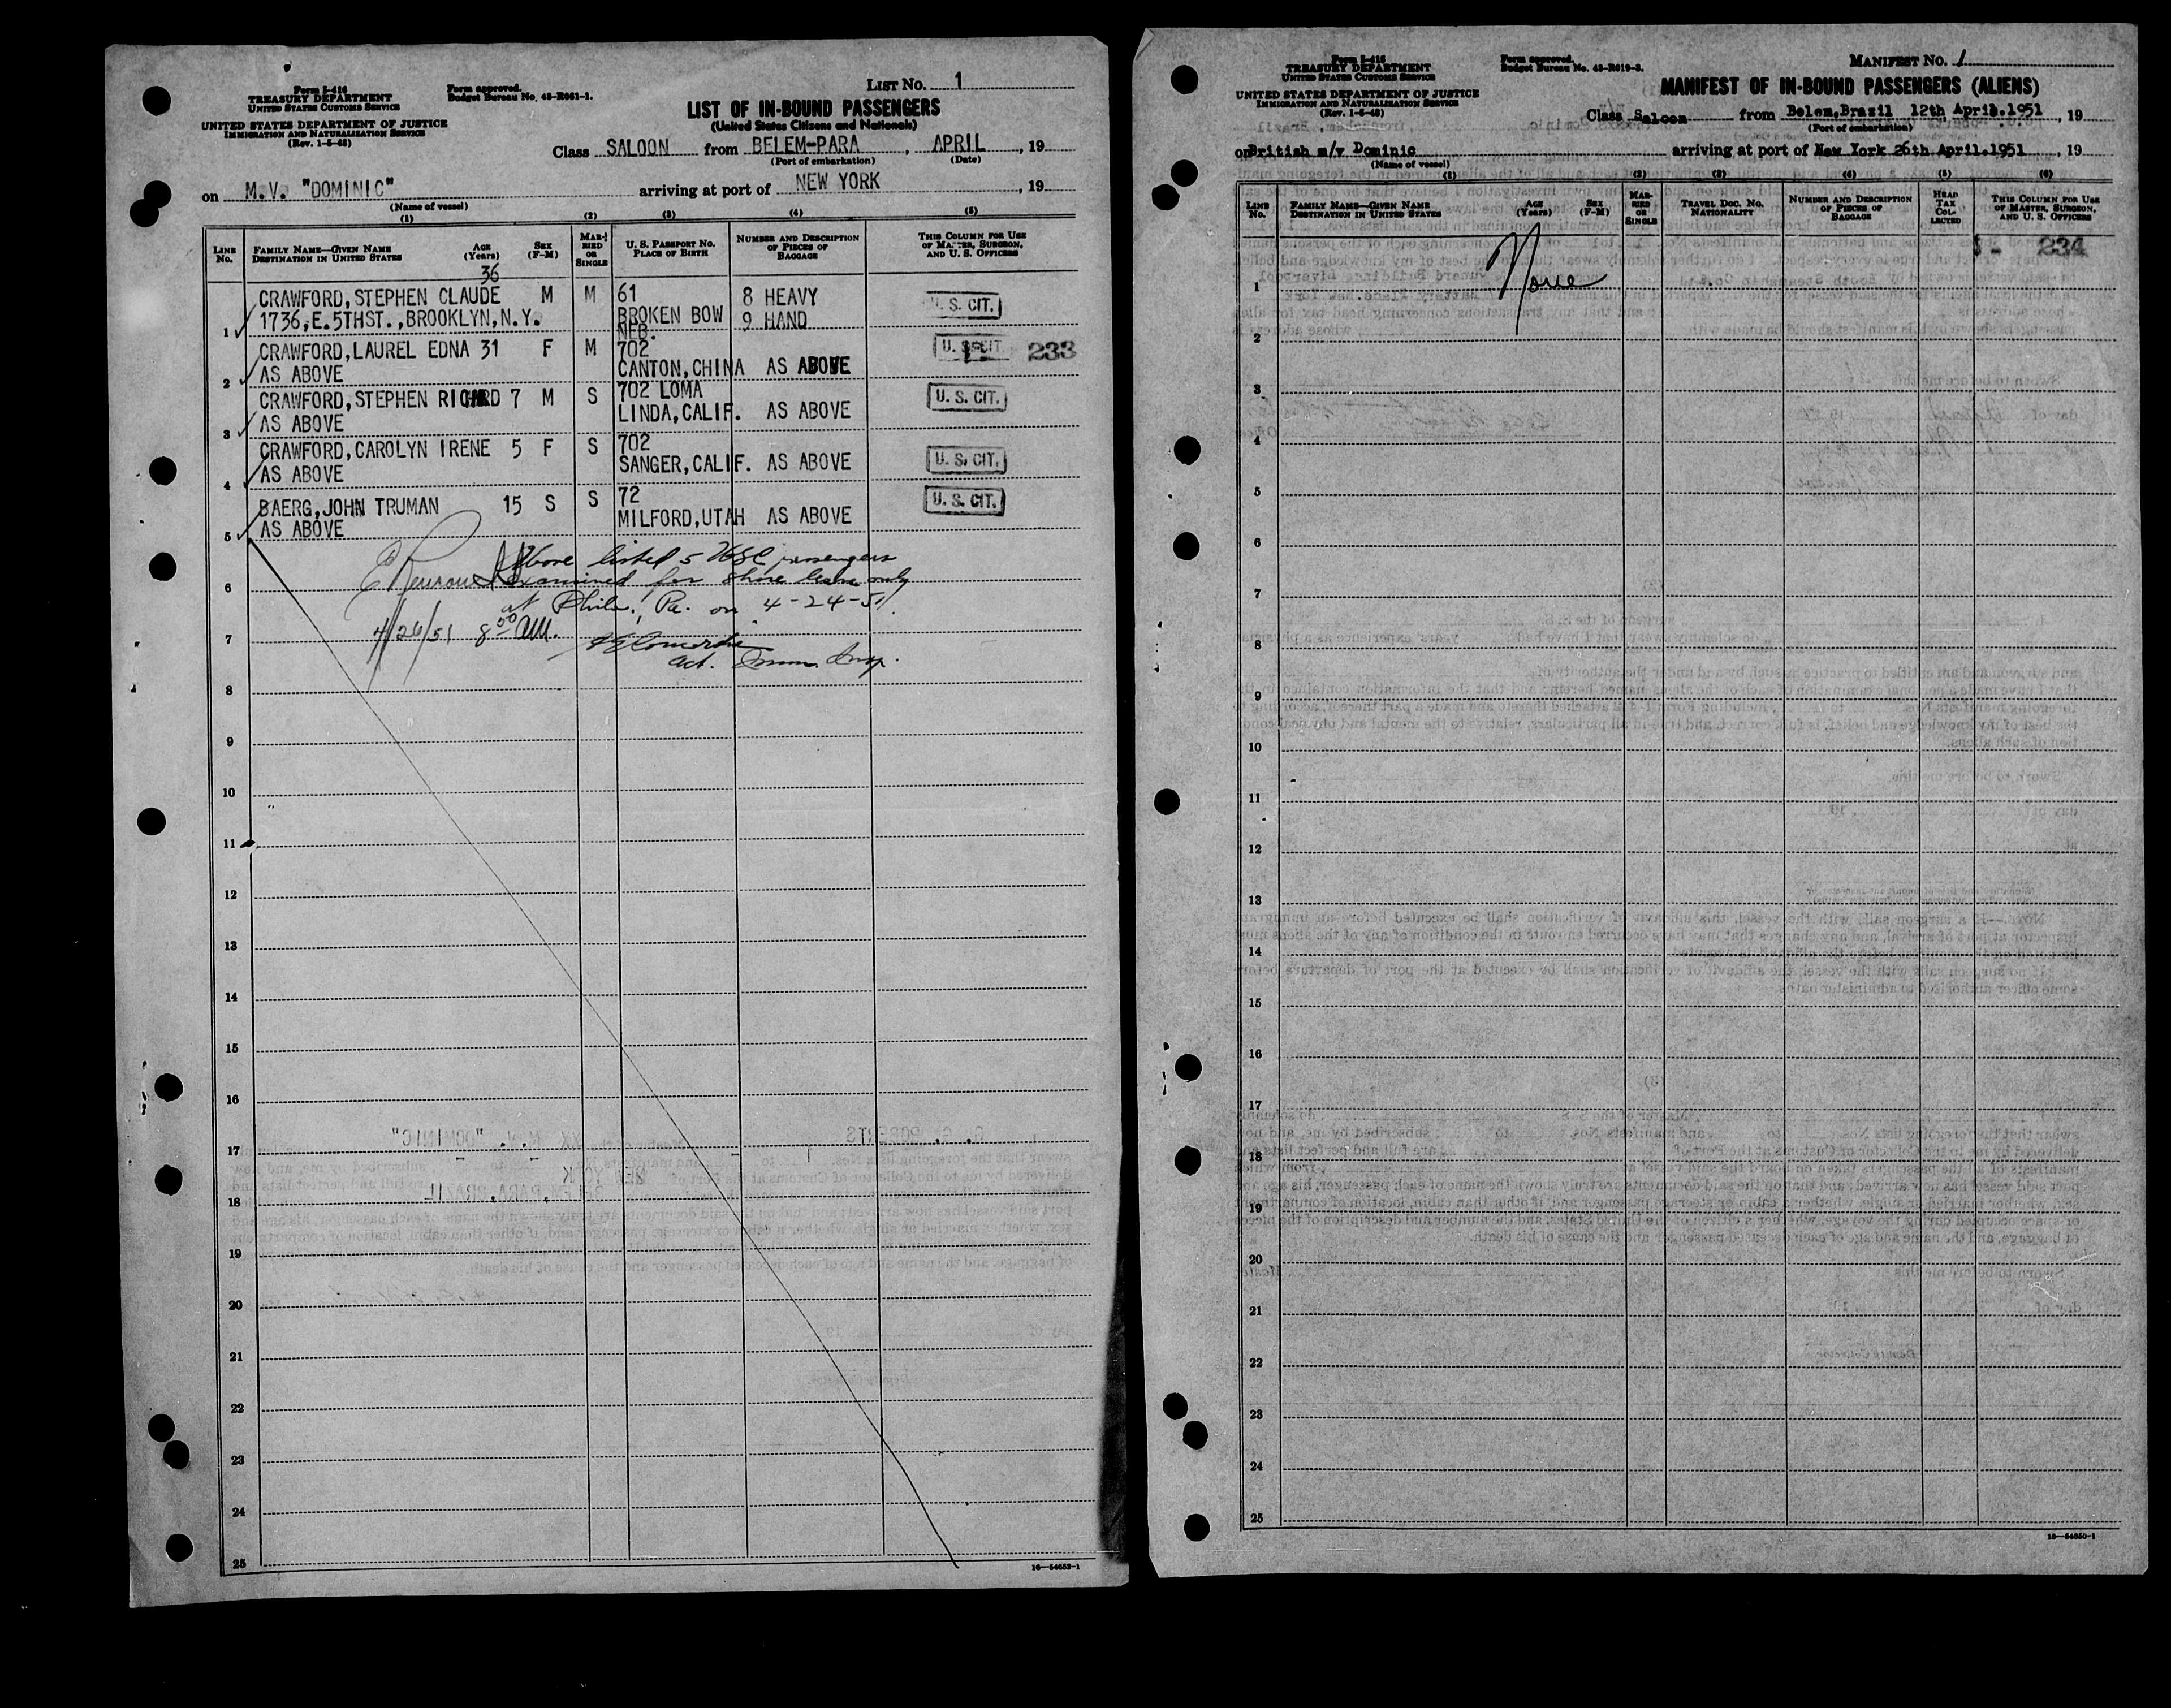 Form I-416
TREASURY DEPARTMENT
UNITED STATES CUSTOMS SERVICE
UNITED STATES DEPARTMENT OF JUSTICE
IMMIGRATION AND NATURALIZATION SERVICE
(Rev. 1-5-48)
Form approved.
Budget Bureau No. 43-R061-1.
LIST NO. 1
LIST OF IN-BOUND PASSENGERS
(United States Citizens and Nationals)
Class SALOON from BELEM-PARA, APRIL, 19
(Port of embarkation) (Date)
on M.V. "DOMINIC" arriving at port of NEW YORK, 19
(Name of vessel)
(1) (2) (3) (4) (5)
LINE NO.
FAMILY NAME—GIVEN NAME
DESTINATION IN UNITED STATES
AGE (Years)
SEX (F-M)
MARRIED OR SINGLE
U. S. PASSPORT NO.
PLACE OF BIRTH
NUMBER AND DESCRIPTION OF PIECES OF BAGGAGE
THIS COLUMN FOR USE OF MASTER, SURGEON, AND U. S. OFFICERS
36
CRAWFORD, STEPHEN CLAUDE M M 61 8 HEAVY U. S. CIT.
1 1736, E. 5THST., BROOKLYN, N.Y. BROKEN BOW NEB. 9 HAND
CRAWFORD, LAUREL EDNA 31 F M 702 U. S. CIT. 233
2 AS ABOVE CANTON, CHINA AS ABOVE
CRAWFORD, STEPHEN RICHARD 7 M S 702 LOMA U. S. CIT.
3 AS ABOVE LINDA, CALIF. AS ABOVE
CRAWFORD, CAROLYN IRENE 5 F S 702 U. S. CIT.
4 AS ABOVE SANGER, CALIF. AS ABOVE
BAERG, JOHN TRUMAN 15 S S 72 U. S. CIT.
5 AS ABOVE MILFORD, UTAH AS ABOVE
Above listed 5 USC passengers
6 examined for shore leave only
at Phila. Pa. on 4-24-51.
7 4/26/51 8 50 AM.
act. Imm Insp.
8
9
10
11
12
13
14
15
16
17
18
19
20
21
22
23
24
25
16—54652-1
Form I-416
TREASURY DEPARTMENT
UNITED STATES CUSTOMS SERVICE
UNITED STATES DEPARTMENT OF JUSTICE
IMMIGRATION AND NATURALIZATION SERVICE
(Rev. 1-5-48)
Form approved.
Budget Bureau No. 43-R019-3.
MANIFEST NO. 1
MANIFEST OF IN-BOUND PASSENGERS (ALIENS)
Class Saloon from Belem, Brazil 12th April.1951, 19
(Port of embarkation)
on British m/v Dominic arriving at port of New York 26th April.1951, 19
(Name of vessel)
(1) (2) (3) (4) (5) (6)
LINE NO.
FAMILY NAME—GIVEN NAME
DESTINATION IN UNITED STATES
AGE (Years)
SEX (F-M)
MARRIED OR SINGLE
TRAVEL DOC. NO.
NATIONALITY
NUMBER AND DESCRIPTION OF PIECES OF BAGGAGE
HEAD TAX COLLECTED
THIS COLUMN FOR USE OF MASTER, SURGEON, AND U. S. OFFICERS
1 - 234
1 None
2
3
4
5
6
7
8
9
10
11
12
13
14
15
16
17
18
19
20
21
22
23
24
25
16—54650-1